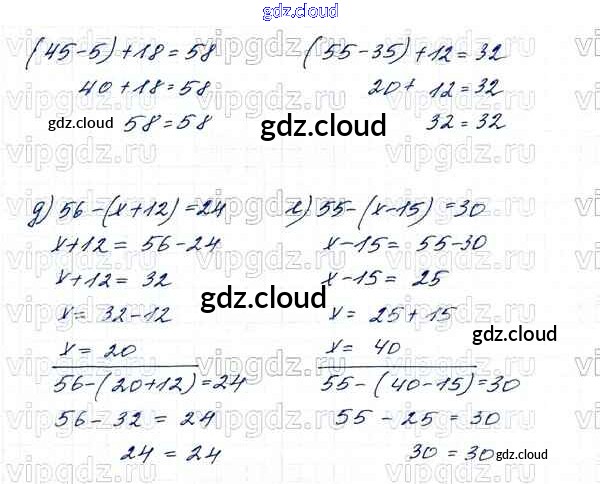 gdz.cloud
(45-5)+18=58 (55-35)+12=32
40+18=58 20+12=32
gdz.cloud 58=58 gdz.cloud 32=32
д) 56-(x+12)=24 е) 55-(x-15)=30
x+12=56-24 x-15=55-30
x+12=32 x-15=25
x=32-12 gdz.cloud x=25+15
x=20 x=40 gdz.cloud
56-(20+12)=24 55-(40-15)=30
56-32=24 55-25=30
24=24 30=30 gdz.cloud
vipgdz.ru